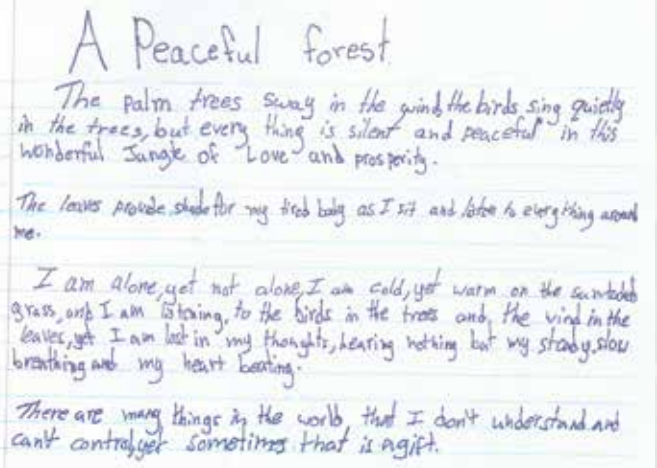 A Peaceful forest
The palm trees sway in the wind, the birds sing quietly
in the trees, but every thing is silent and peaceful in this
wonderful Jungle of Love and prosperity.
The leaves provide shade for my tired body as I sit and listen to everything around
me.
I am alone, yet not alone, I am cold, yet warm on the
grass, and I am listening, to the birds in the trees and, the wind in the
leaves, yet I am lost in my thoughts, hearing nothing but my steady, slow
breathing and my heart beating.
There are many things in the world, that I don't understand and
can't control, yet sometimes that is a gift.